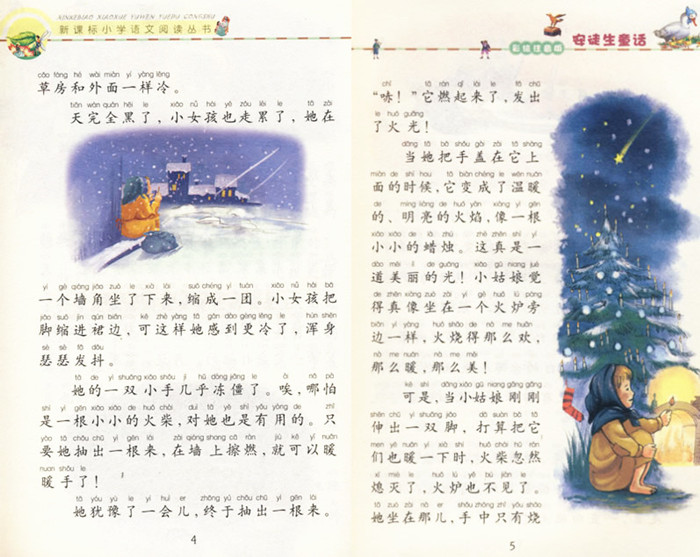 XINKEBIAO XIAOXUE YUWEN YUEDU CONGSHU
新课标小学语文阅读丛书
cǎo fáng hé wài miàn yí yàng lěng
草房和外面一样冷。
tiān wán quán hēi le xiǎo nǚ hái yě zǒu lèi le tā zài
天完全黑了，小女孩也走累了，她在
yí gè qiáng jiǎo zuò le xià lái suō chéng yì tuán xiǎo nǚ hái bǎ
一个墙角坐了下来，缩成一团。小女孩把
jiǎo suō jìn qún biān kě zhè yàng tā gǎn dào gèng lěng le hún shēn
脚缩进裙边，可这样她感到更冷了，浑身
sè sè fā dǒu
瑟瑟发抖。
tā de yì shuāng xiǎo shǒu jī hū dòng jiāng le āi nǎ pà
她的一双小手几乎冻僵了。唉，哪怕
shì yì gēn xiǎo xiǎo de huǒ chái duì tā yě shì yǒu yòng de zhǐ
是一根小小的火柴，对她也是有用的。只
yào tā chōu chū yì gēn lái zài qiáng shang cā rán jiù kě yǐ nuǎn
要她抽出一根来，在墙上擦燃，就可以暖
nuan shǒu le
暖手了！
tā yóu yù le yí huì er zhōng yú chōu chū yì gēn lái
她犹豫了一会儿，终于抽出一根来。
4
彩绘注音版
安徒生童话
chī tā rán qǐ lái le fā chū
“哧！”它燃起来了，发出
le huǒ guāng
了火光！
dāng tā bǎ shǒu gài zài tā shàng
当她把手盖在它上
miàn de shí hou tā biàn chéng le wēn nuǎn
面的时候，它变成了温暖
de míng liàng de huǒ yàn xiàng yì gēn
的、明亮的火焰，像一根
xiǎo xiǎo de là zhú zhè zhēn shì yí
小小的蜡烛。这真是一
dào měi lì de guāng xiǎo gū niang jué
道美丽的光！小姑娘觉
de zhēn xiàng zuò zài yí gè huǒ lú páng
得真像坐在一个火炉旁
biān yí yàng huǒ shāo de nà me huān
边一样，火烧得那么欢，
nà me nuǎn nà me měi
那么暖，那么美！
kě shì dāng xiǎo gū niang gāng gāng
可是，当小姑娘刚刚
shēn chū yì shuāng jiǎo dǎ suàn bǎ tā
伸出一双脚，打算把它
men yě nuǎn yí xià shí huǒ chái hū rán
们也暖一下时，火柴忽然
xī miè le huǒ lú yě bú jiàn le
熄灭了，火炉也不见了。
tā zuò zài nà er shǒu zhōng zhǐ yǒu shāo
她坐在那儿，手中只有烧
5